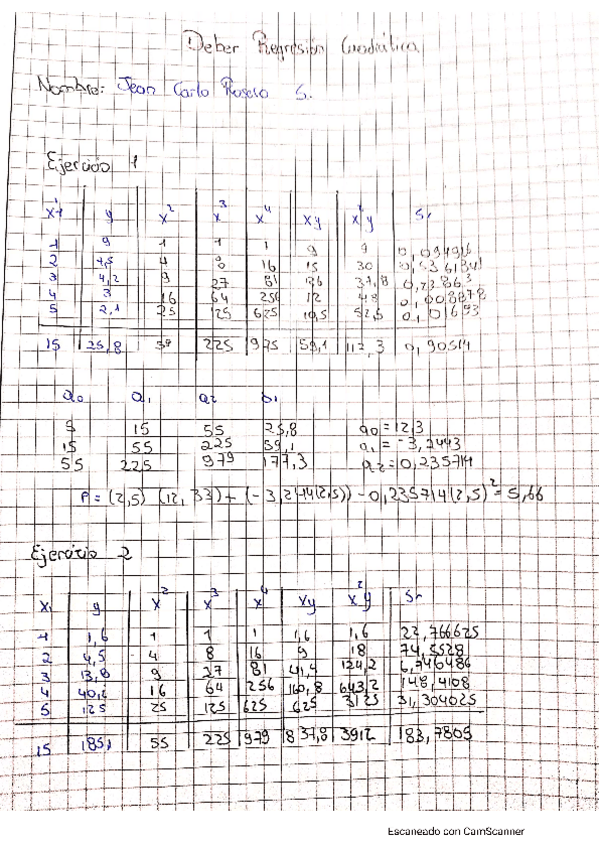 Deber Regresión Cuadrática
Nombre: Jean Carlo Rosero S.
Ejercicio 1
y x² x³ x⁴ xy x²y Sr
1 9 1 1 1 9 9
2 7,5 4 8 16 15 30
3 4,2 9 27 81 37,8
4 3 16 64 256 12 48
5 2,1 25 125 625 10,5 52,5
15 25,8 225 59,1 0,90514
a0 a1 a2 b1
5 15 55 25,8 a0 = 12,3
15 55 225 59,1 a1 = -3,7443
55 225 979 177,3 a2 = 0,235714
P = (2,5) (12, 33) + (-3,2414(2,5)) - 0,235714(2,5)² = 5,66
Ejercicio 2
x y x² x³ x⁴ xy x²y Sr
1 1,6 1 1 1 1,6 1,6 22,766625
2 4,5 4 8 16 9 18 74,5528
3 13,8 9 27 81 41,4 124,2 6,746486
4 40,2 16 64 256 160,8 643,2 148,4108
5 125 25 125 625 625 3125 31,304025
15 185,1 55 225 979 837,8 3912 183,7805
Escaneado con CamScanner